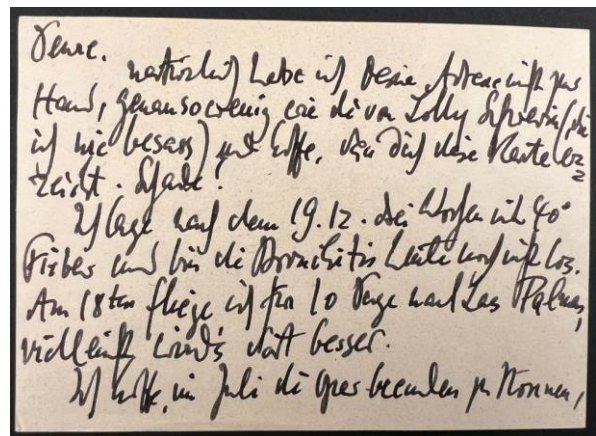 natürlich habe ich Deine Adresse nicht zur
Hand, genausowenig wie die von Lolly (die
ich nie besass) und hoffe, dass dich diese Karte er=
reicht. Schade!
Ich lag nach dem 19.12. drei Wochen mit 40°
Fieber und bin die Bronchitis heute noch nicht los.
Am 18ten fliege ich für 10 Tage nach Las Palmas,
vielleicht wird's dort besser.
Ich hoffe, im Juli die Oper beenden zu können,